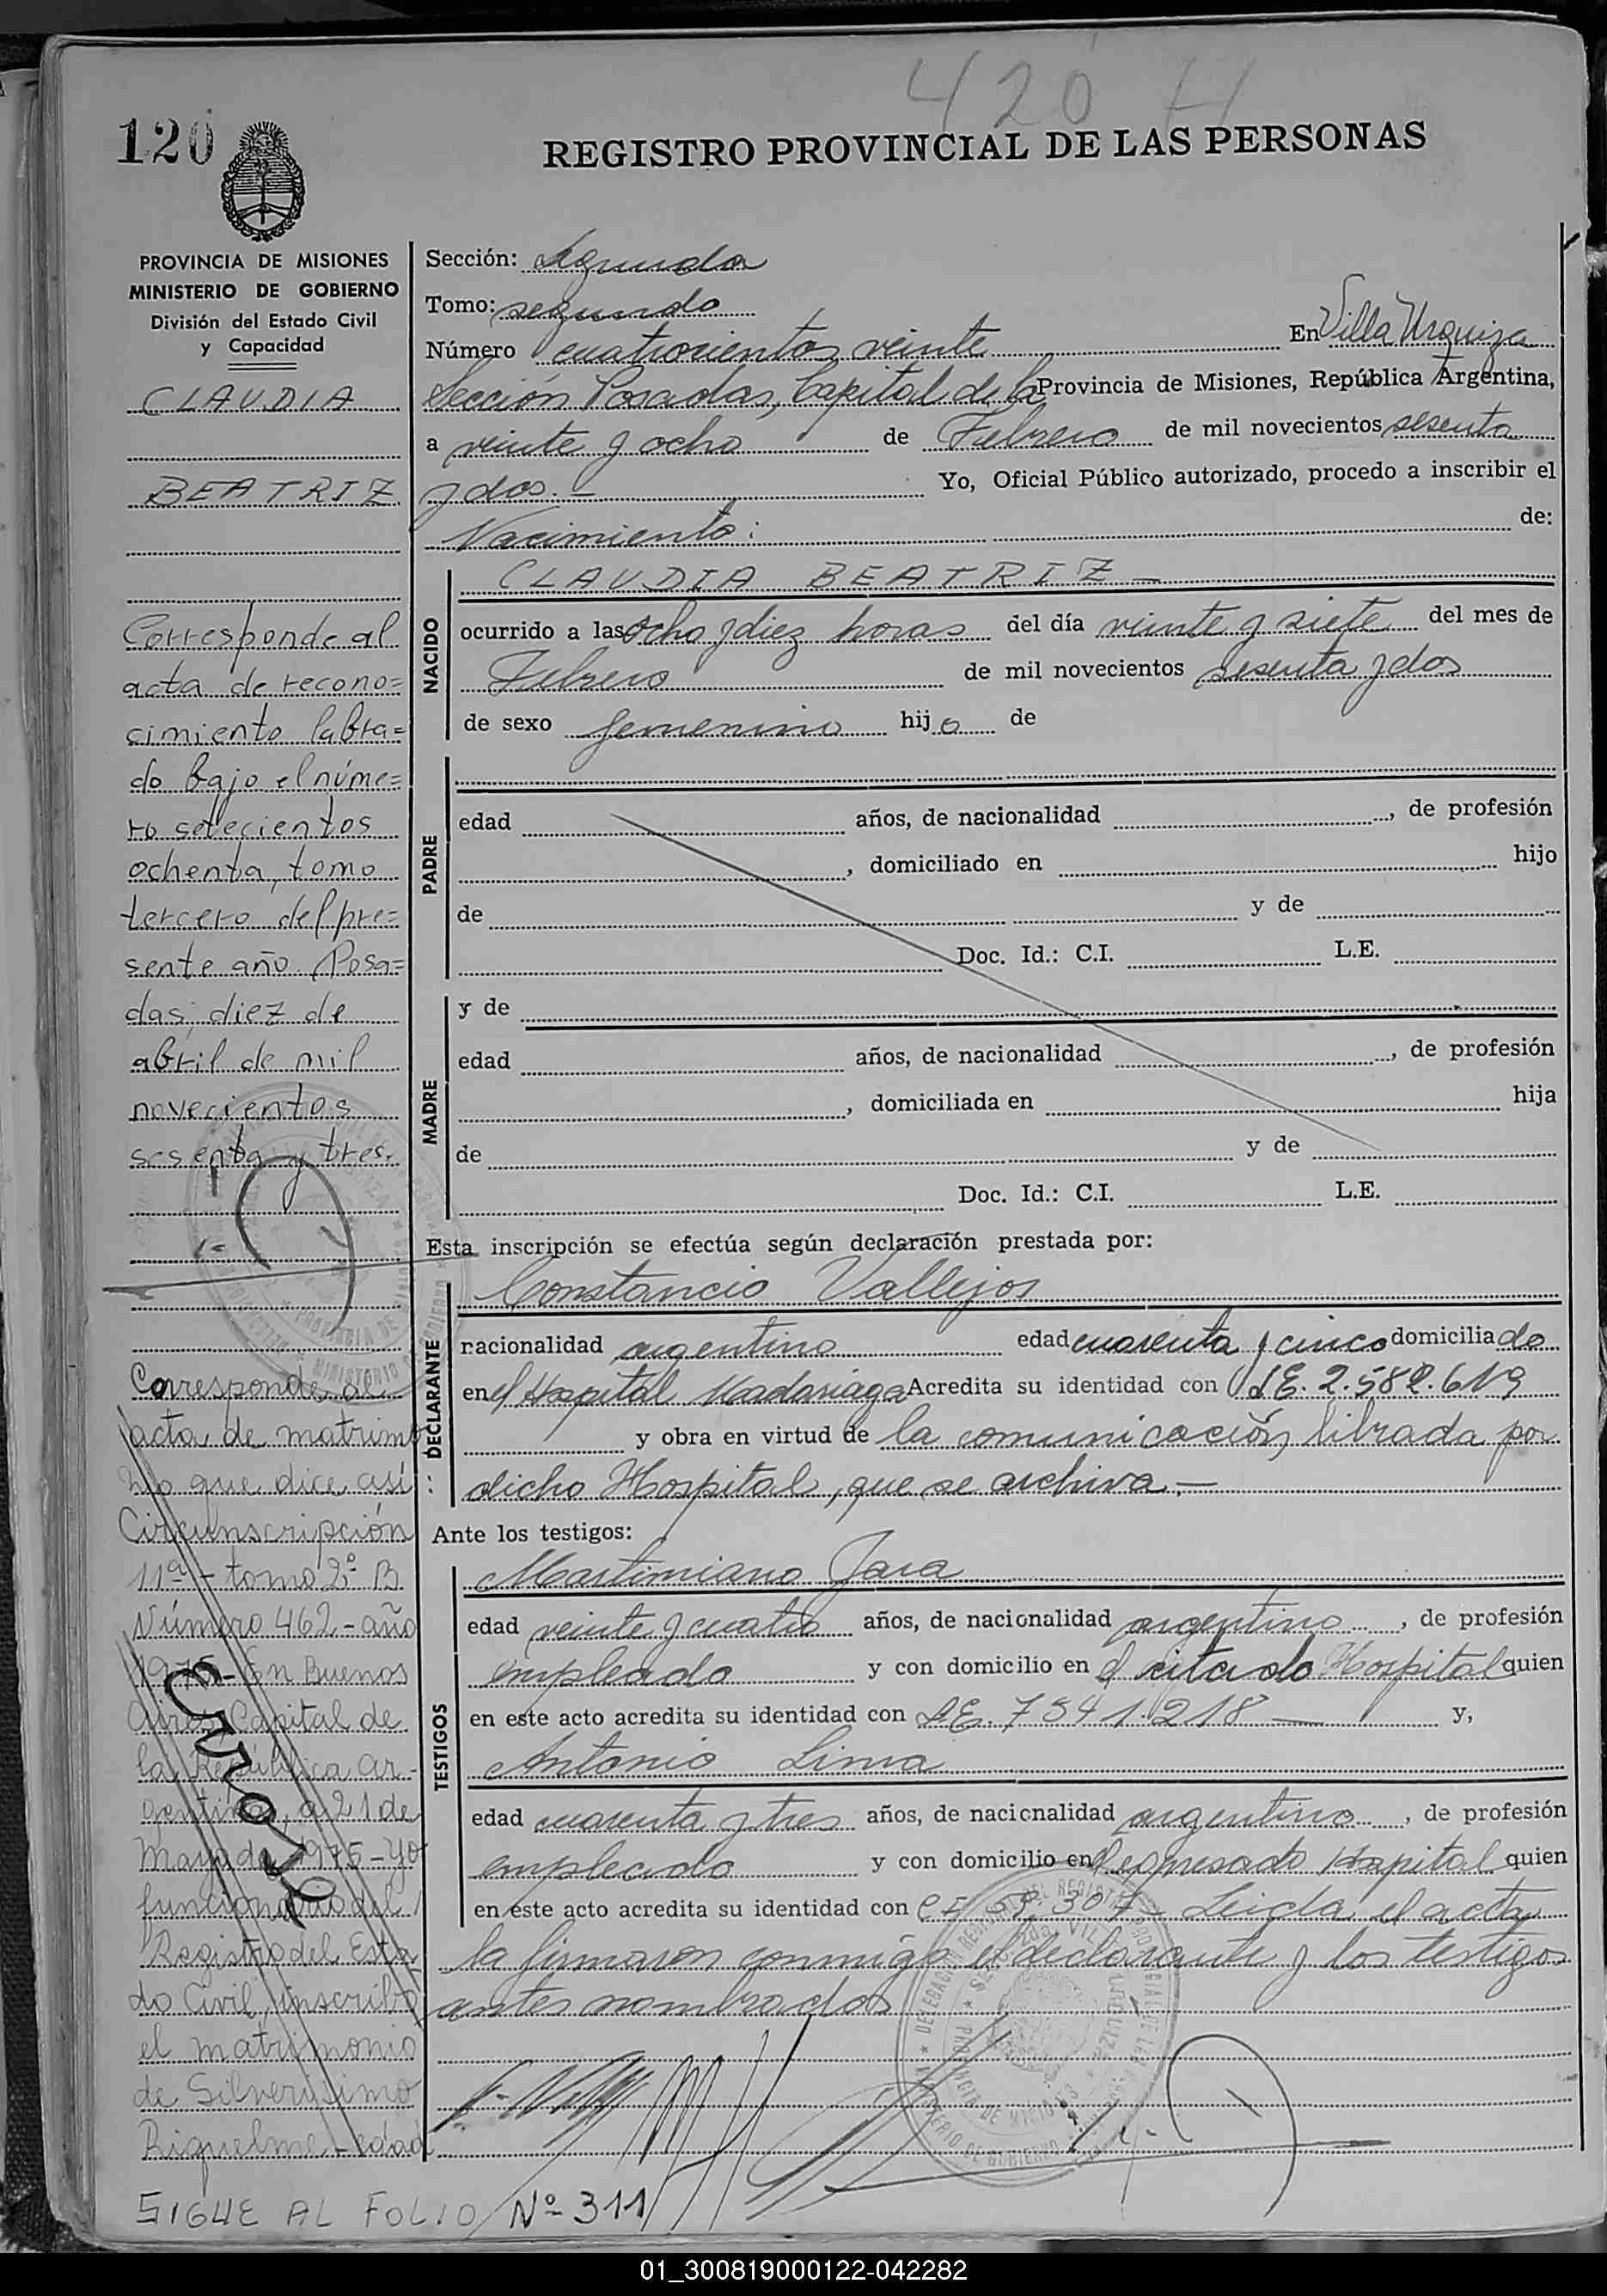 420 H
120
REGISTRO PROVINCIAL DE LAS PERSONAS
PROVINCIA DE MISIONES
MINISTERIO DE GOBIERNO
División del Estado Civil
y Capacidad
CLAUDIA
BEATRIZ
Corresponde al
acta de recono=
cimiento labra=
do bajo el núme=
ro setecientos
ochenta, tomo
tercero del pre=
sente año. Posa=
das, diez de
abril de mil
novecientos
sesenta y tres.
Corresponde al
acta de matrimo
nio que dice así
Circunscripción
11ª - tomo 2º B.
Número 462 - año
1975 - En Buenos
Aires, Capital de
la República Ar-
gentina, a 21 de
Mayo de 1975 - yo
funcionario del
Registro del Esta
do Civil, inscribo
el matrimonio
de Silverisimo
Riquelme - edad
Errose
SIGUE AL FOLIO Nº 311
Sección: Segunda
Tomo: segundo
Número cuatrocientos veinte En Villa Urquiza
Sección Posadas, Capital de la Provincia de Misiones, República Argentina,
a veinte y ocho de Febrero de mil novecientos sesenta
y dos. - Yo, Oficial Público autorizado, procedo a inscribir el
Nacimiento: de:
NACIDO
CLAUDIA BEATRIZ -
ocurrido a las ocho y diez horas del día veinte y siete del mes de
Febrero de mil novecientos sesenta y dos
de sexo femenino hijo de
PADRE
edad años, de nacionalidad , de profesión
, domiciliado en hijo
de y de
Doc. Id.: C.I. L.E.
MADRE
y de
edad años, de nacionalidad , de profesión
, domiciliada en hija
de y de
Doc. Id.: C.I. L.E.
Esta inscripción se efectúa según declaración prestada por:
DECLARANTE
Constancio Vallejos
nacionalidad argentino edad cuarenta y cinco domiciliado
en el Hospital Madariaga Acredita su identidad con L.E. 2.582.619
y obra en virtud de la comunicación librada por
dicho Hospital, que se archiva. -
Ante los testigos:
TESTIGOS
Martimiano Jara
edad veinte y cuatro años, de nacionalidad argentino , de profesión
empleado y con domicilio en el citado Hospital quien
en este acto acredita su identidad con L.E. 7541.218 y,
Antonio Lima
edad cuarenta y tres años, de nacionalidad argentino , de profesión
empleado y con domicilio en el expresado Hospital quien
en este acto acredita su identidad con 307 - Leída el acta
la firmaron conmigo el declarante y los testigos
antes nombrados
01_300819000122-042282